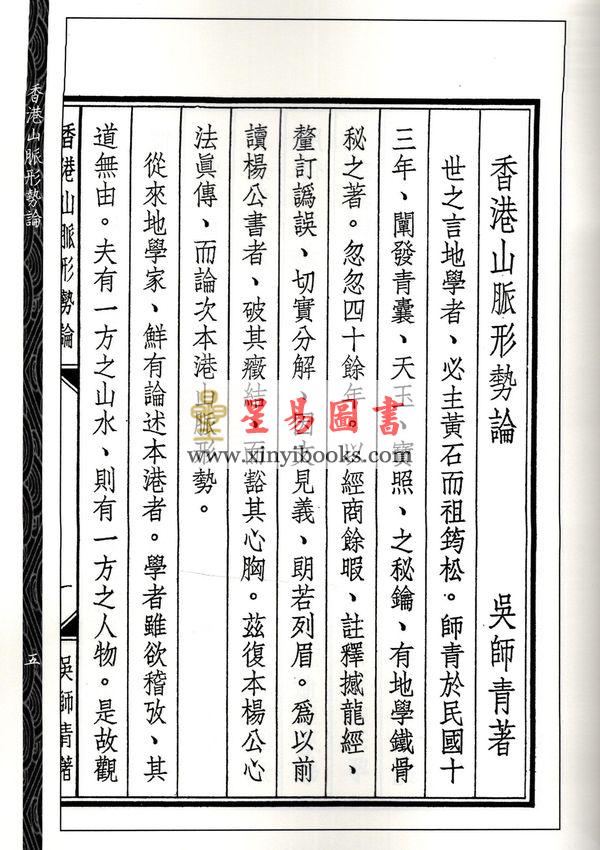 香港山脈形勢論 吳師青著
世之言地學者、必主黃石而祖筠松。師青於民國十
三年、闡發青囊、天玉、寶照、之秘鑰、有地學鐵骨
秘之著。忽忽四十餘年。以經商餘暇、註釋撼龍經、
釐訂譌誤、切實分解、因文見義、朗若列眉。爲以前
讀楊公書者、破其癥結、而豁其心胸。茲復本楊公心
法眞傳、而論次本港山脈形勢。
從來地學家、鮮有論述本港者。學者雖欲稽攷、其
道無由。夫有一方之山水、則有一方之人物。是故觀
香港山脈形勢論 一 吳師青著
香港山脈形勢論 五
星易圖書
www.xinyibooks.com